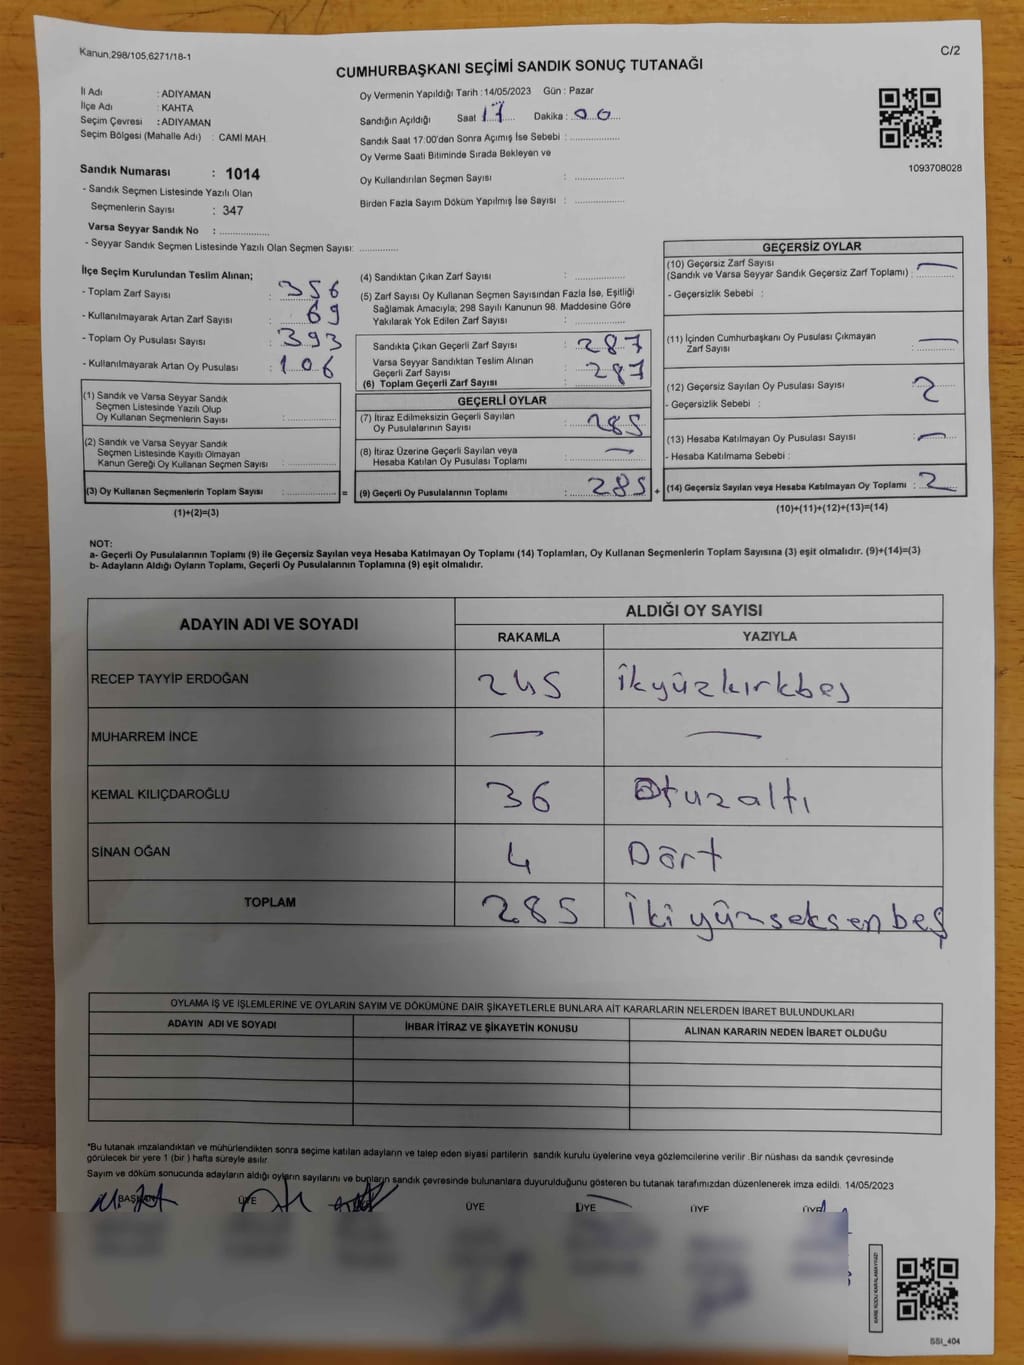 Kanun,298/105,6271/18-1
C/2
CUMHURBAŞKANI SEÇİMİ SANDIK SONUÇ TUTANAĞI
İl Adı : ADIYAMAN
İlçe Adı : KAHTA
Seçim Çevresi : ADIYAMAN
Seçim Bölgesi (Mahalle Adı) : CAMİ MAH.
Sandık Numarası : 1014
- Sandık Seçmen Listesinde Yazılı Olan
Seçmenlerin Sayısı : 347
Varsa Seyyar Sandık No : ..................
- Seyyar Sandık Seçmen Listesinde Yazılı Olan Seçmen Sayısı: ..............
Oy Vermenin Yapıldığı Tarih : 14/05/2023 Gün : Pazar
Sandığın Açıldığı Saat 17 Dakika : 00
Sandık Saat 17:00'den Sonra Açımış İse Sebebi : ..................
Oy Verme Saati Bitiminde Sırada Bekleyen ve
Oy Kullandırılan Seçmen Sayısı : ..................
Birden Fazla Sayım Döküm Yapılmış İse Sayısı : ..................
1093708028
İlçe Seçim Kurulundan Teslim Alınan;
- Toplam Zarf Sayısı : 356
- Kullanılmayarak Artan Zarf Sayısı : 69
- Toplam Oy Pusulası Sayısı : 393
- Kullanılmayarak Artan Oy Pusulası : 106
(1) Sandık ve Varsa Seyyar Sandık
Seçmen Listesinde Yazılı Olup
Oy Kullanan Seçmenlerin Sayısı : ..................
(2) Sandık ve Varsa Seyyar Sandık
Seçmen Listesinde Kayıtlı Olmayan
Kanun Gereği Oy Kullanan Seçmen Sayısı : ..................
(3) Oy Kullanan Seçmenlerin Toplam Sayısı : .................. =
(1)+(2)=(3)
(4) Sandıktan Çıkan Zarf Sayısı : ..................
(5) Zarf Sayısı Oy Kullanan Seçmen Sayısından Fazla İse, Eşitliği
Sağlamak Amacıyla; 298 Sayılı Kanunun 98. Maddesine Göre
Yakılarak Yok Edilen Zarf Sayısı : ..................
Sandıkta Çıkan Geçerli Zarf Sayısı : 287
Varsa Seyyar Sandıktan Teslim Alınan
Geçerli Zarf Sayısı : 287
(6) Toplam Geçerli Zarf Sayısı : ..................
GEÇERLİ OYLAR
(7) İtiraz Edilmeksizin Geçerli Sayılan
Oy Pusulalarının Sayısı : 285
(8) İtiraz Üzerine Geçerli Sayılan veya
Hesaba Katılan Oy Pusulası Toplamı : —
(9) Geçerli Oy Pusulalarının Toplamı : 285 +
GEÇERSİZ OYLAR
(10) Geçersiz Zarf Sayısı
(Sandık ve Varsa Seyyar Sandık Geçersiz Zarf Toplamı) : —
- Geçersizlik Sebebi :
(11) İçinden Cumhurbaşkanı Oy Pusulası Çıkmayan
Zarf Sayısı : —
(12) Geçersiz Sayılan Oy Pusulası Sayısı : 2
- Geçersizlik Sebebi :
(13) Hesaba Katılmayan Oy Pusulası Sayısı : —
- Hesaba Katılmama Sebebi :
(14) Geçersiz Sayılan veya Hesaba Katılmayan Oy Toplamı : 2
(10)+(11)+(12)+(13)=(14)
NOT:
a- Geçerli Oy Pusulalarının Toplamı (9) ile Geçersiz Sayılan veya Hesaba Katılmayan Oy Toplamı (14) Toplamları, Oy Kullanan Seçmenlerin Toplam Sayısına (3) eşit olmalıdır. (9)+(14)=(3)
b- Adayların Aldığı Oyların Toplamı, Geçerli Oy Pusulalarının Toplamına (9) eşit olmalıdır.
ADAYIN ADI VE SOYADI
ALDIĞI OY SAYISI
RAKAMLA YAZIYLA
RECEP TAYYİP ERDOĞAN 245 ikyüzkırkbeş
MUHARREM İNCE — —
KEMAL KILIÇDAROĞLU 36 Otuzaltı
SİNAN OĞAN 4 Dört
TOPLAM 285 İkiyünseksenbeş
OYLAMA İŞ VE İŞLEMLERİNE VE OYLARIN SAYIM VE DÖKÜMÜNE DAİR ŞİKAYETLERLE BUNLARA AİT KARARLARIN NELERDEN İBARET BULUNDUKLARI
ADAYIN ADI VE SOYADI İHBAR İTİRAZ VE ŞİKAYETİN KONUSU ALINAN KARARIN NEDEN İBARET OLDUĞU
"Bu tutanak imzalandıktan ve mühürlendikten sonra seçime katılan adayların ve talep eden siyasi partilerin sandık kurulu üyelerine veya gözlemcilerine verilir .Bir nüshası da sandık çevresinde
görülecek bir yere 1 (bir ) hafta süreyle asılır.
Sayım ve döküm sonucunda adayların aldığı oyların sayılarını ve bunların sandık çevresinde bulunanlara duyurulduğunu gösteren bu tutanak tarafımızdan düzenlenerek imza edildi. 14/05/2023
BAŞKAN ÜYE ÜYE ÜYE ÜYE ÜYE
KARE KODU KARALAMAYINIZ!
SSI_404